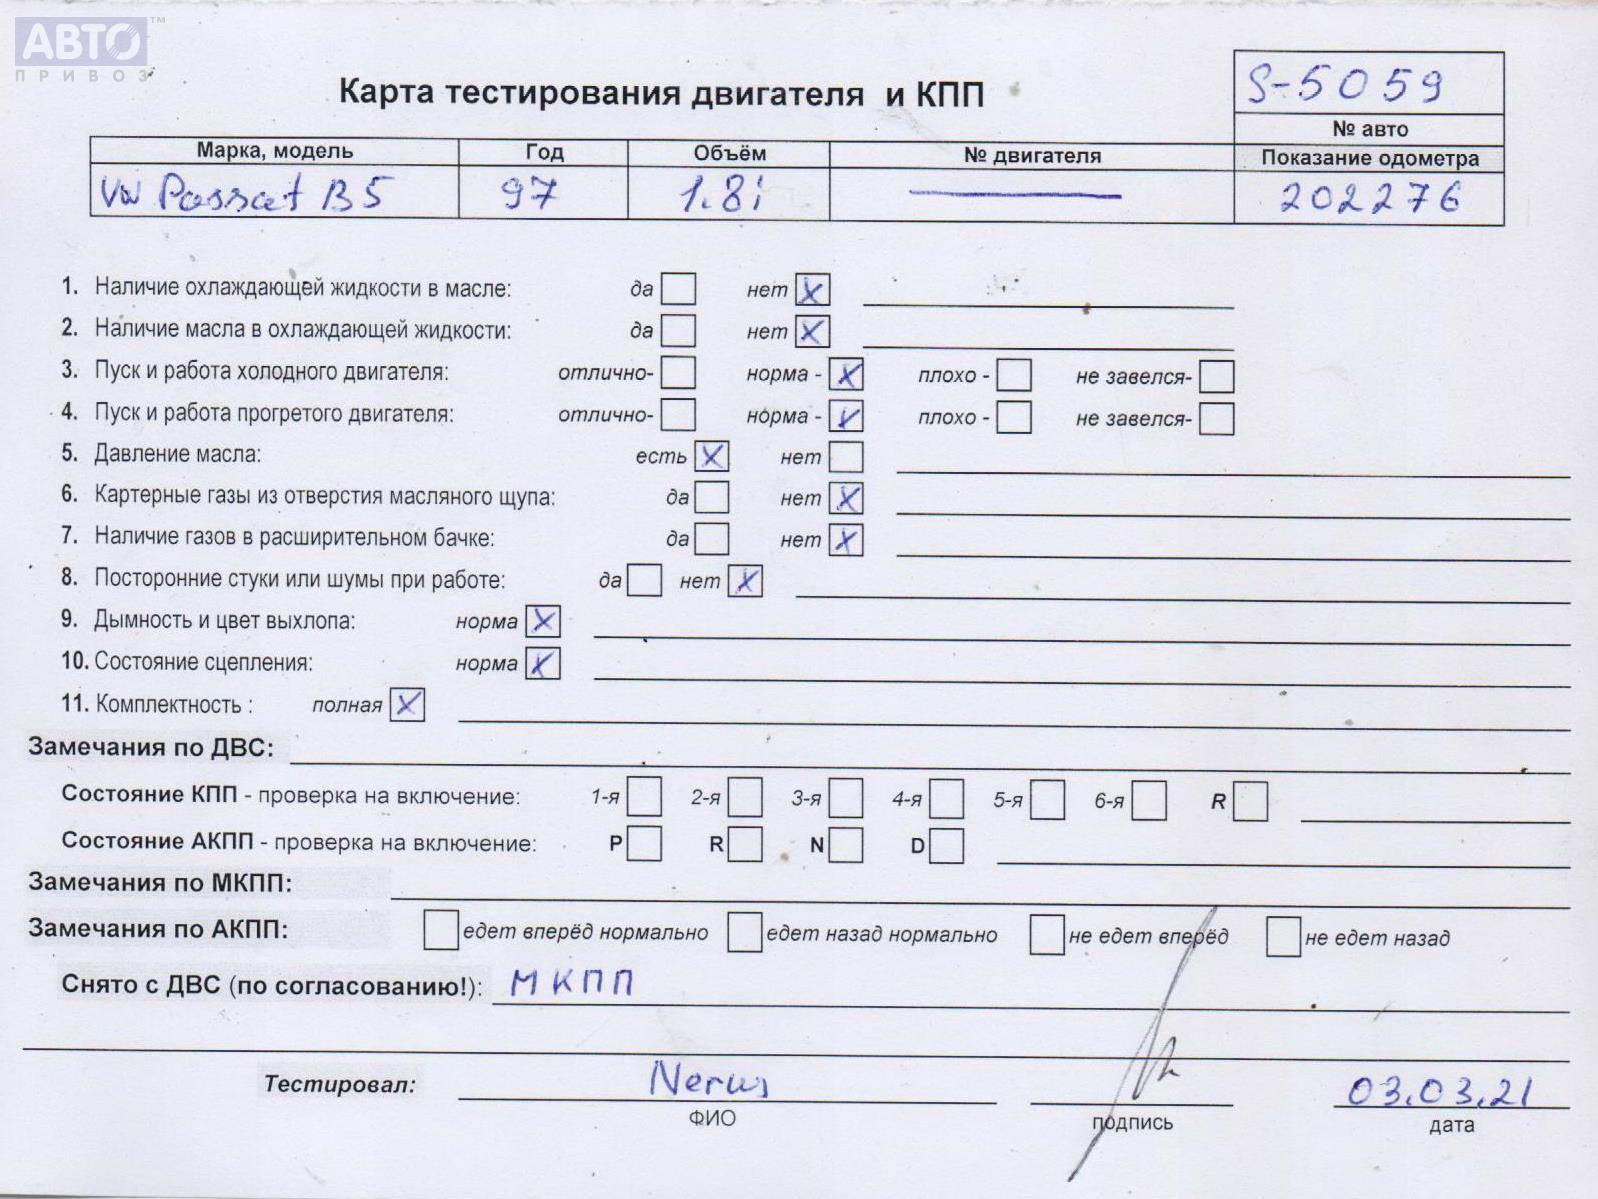 АВТО™
ПРИВОЗ
Карта тестирования двигателя и КПП
S-5059
№ авто
Марка, модель Год Объём № двигателя Показание одометра
VW Passat B5 97 1.8i — 202276
1. Наличие охлаждающей жидкости в масле: да нет X
2. Наличие масла в охлаждающей жидкости: да нет X
3. Пуск и работа холодного двигателя: отлично- норма - X плохо - не завелся-
4. Пуск и работа прогретого двигателя: отлично- норма - X плохо - не завелся-
5. Давление масла: есть X нет
6. Картерные газы из отверстия масляного щупа: да нет X
7. Наличие газов в расширительном бачке: да нет X
8. Посторонние стуки или шумы при работе: да нет X
9. Дымность и цвет выхлопа: норма X
10. Состояние сцепления: норма X
11. Комплектность : полная X
Замечания по ДВС:
Состояние КПП - проверка на включение: 1-я 2-я 3-я 4-я 5-я 6-я R
Состояние АКПП - проверка на включение: P R N D
Замечания по МКПП:
Замечания по АКПП: едет вперёд нормально едет назад нормально не едет вперёд не едет назад
Снято с ДВС (по согласованию!): МКПП
Тестировал: 03.03.21
ФИО подпись дата